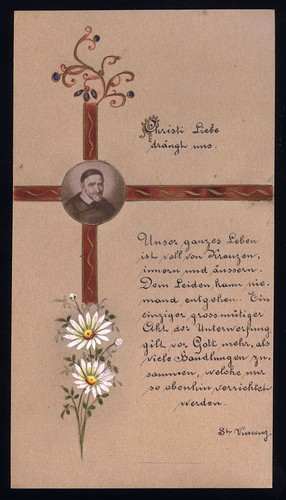 Christi Liebe
drängt uns.
Unser ganzes Leben
ist voll von Kreuzen,
innern und äussern.
Dem Leiden kann nie-
mand entgehen. Ein
einziger grossmütiger
Akt der Unterwerfung
gilt vor Gott mehr, als
viele Handlungen zu-
sammen, welche nur
so obenhin verrichtet
werden.
St. Vincenz